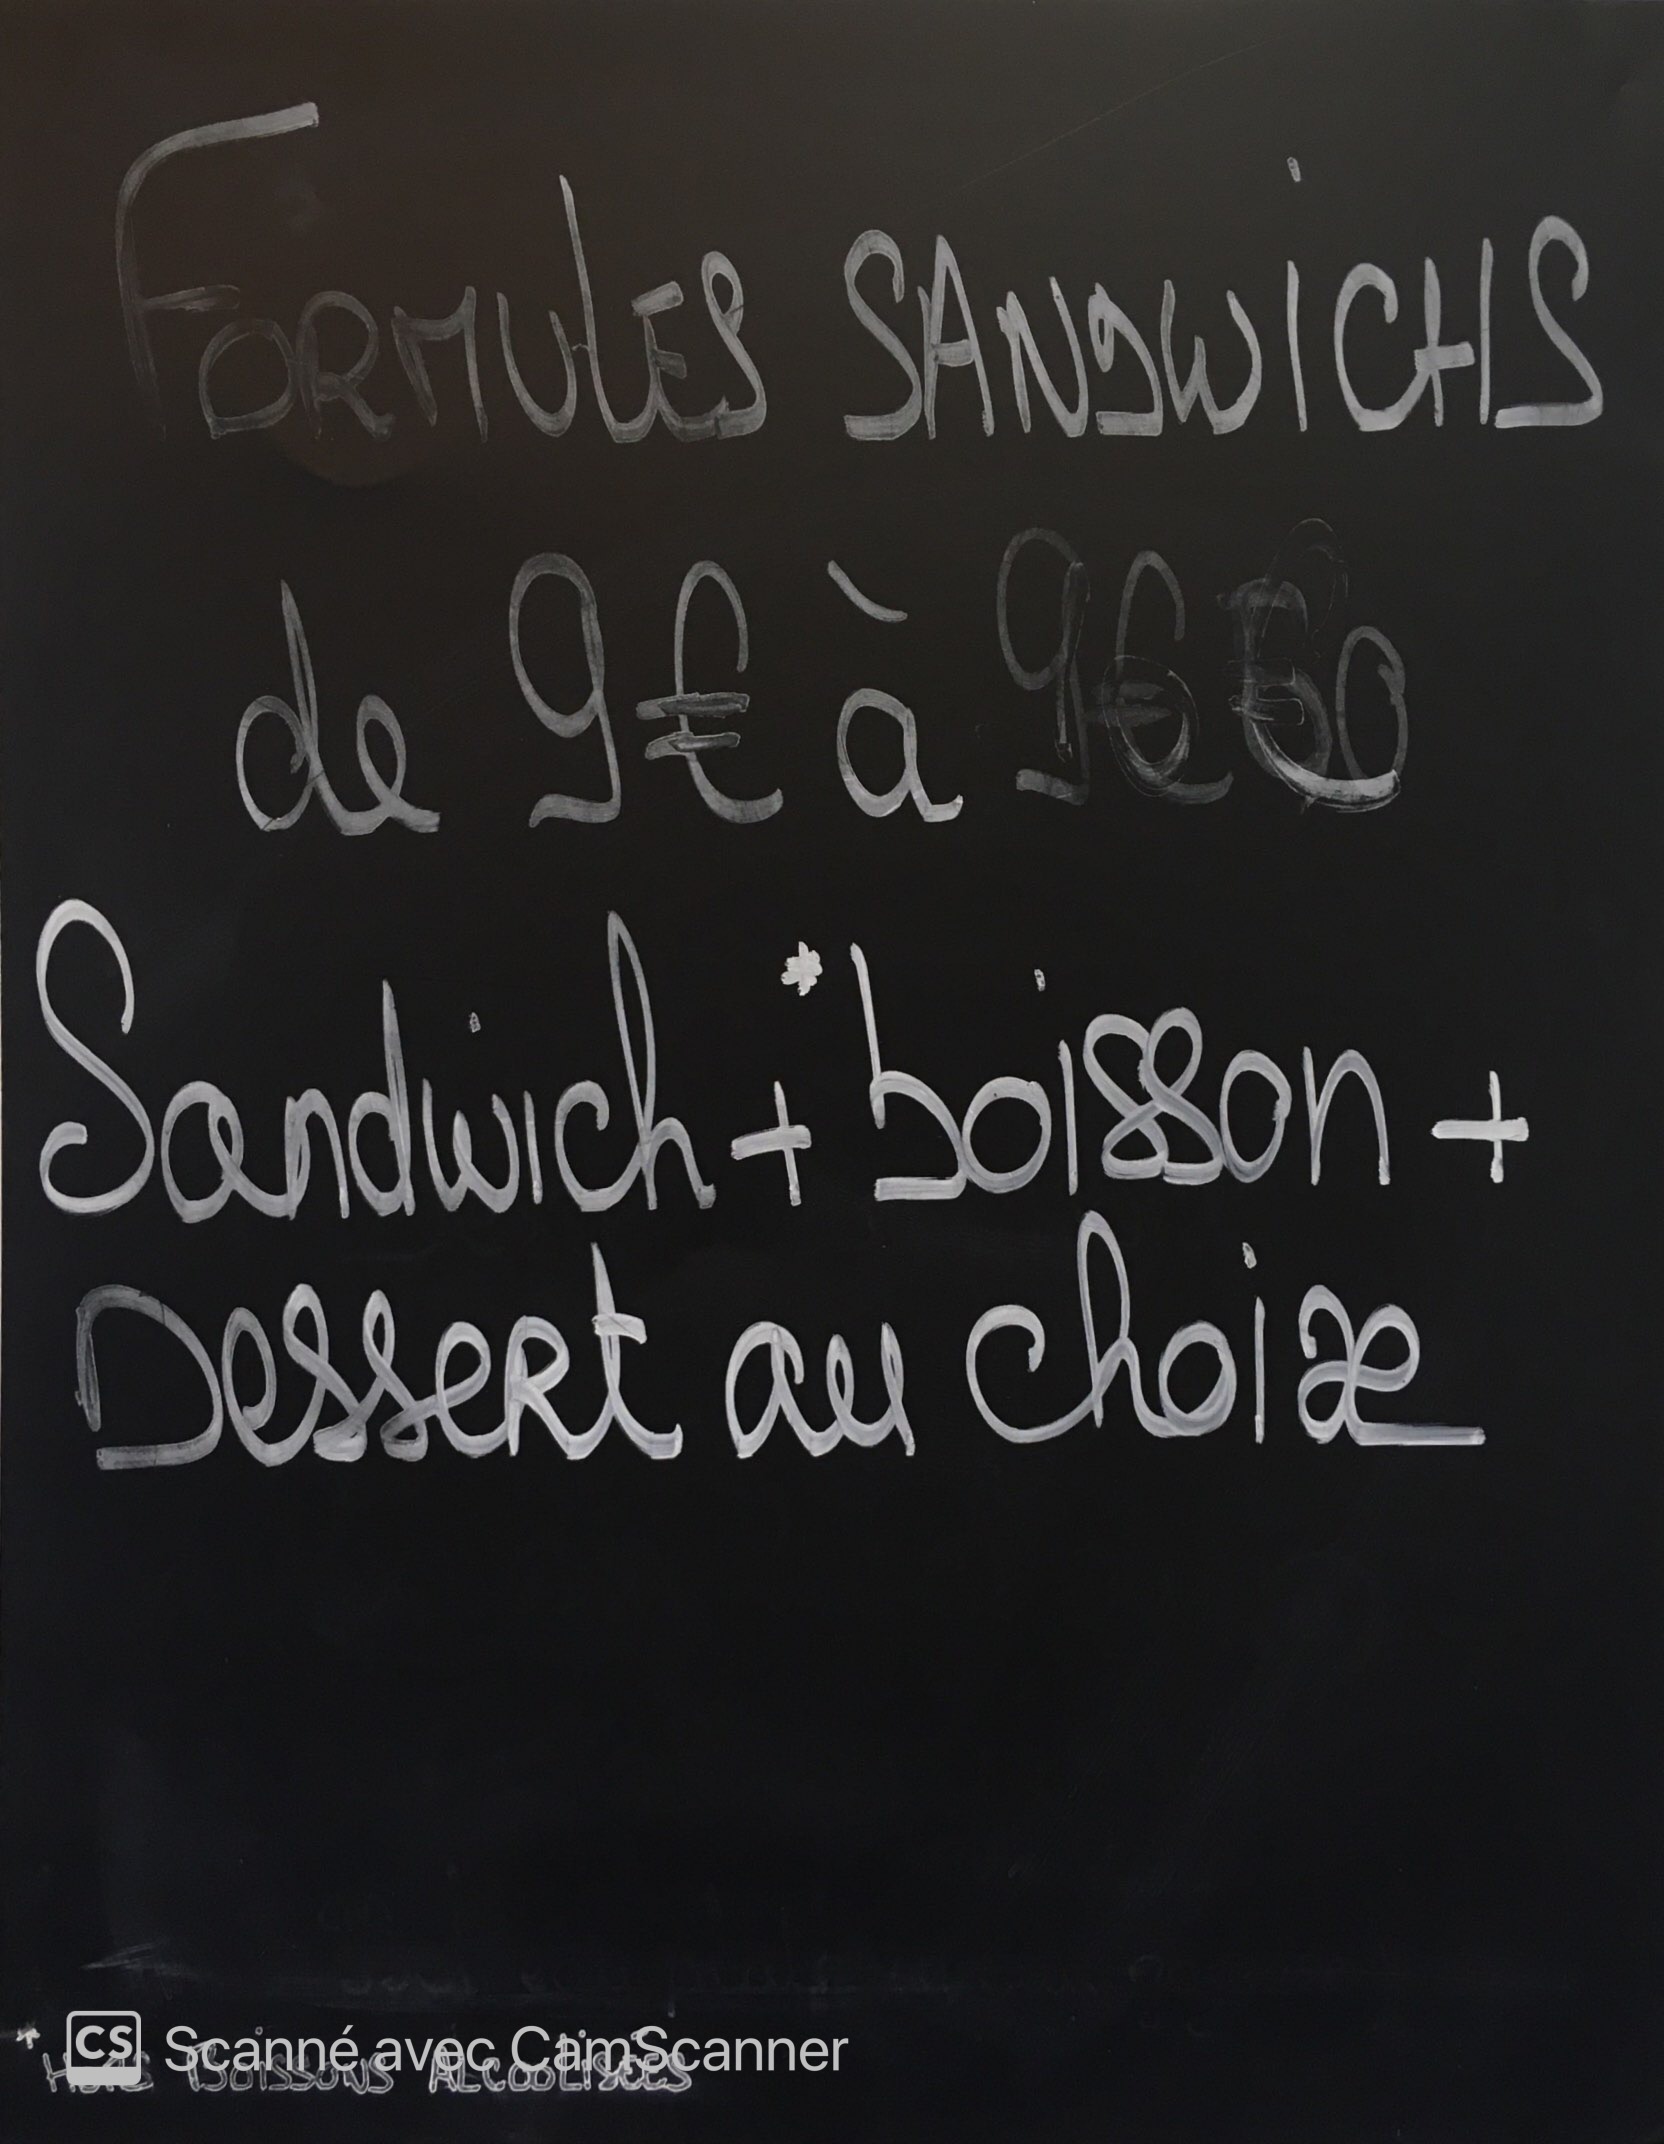 FORMULES SANDWICHS
de 9€ à 9€50
Sandwich + *boisson +
Dessert au choix
* HORS BOISSONS ALCOOLISÉES
CS Scanné avec CamScanner